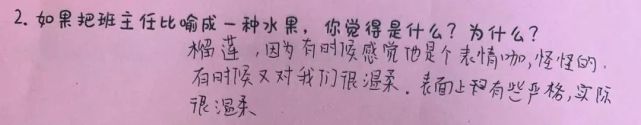 2. 如果把班主任比喻成一种水果，你觉得是什么？为什么？
榴莲，因为有时候感觉他是个表情咖，怪怪的．
有时候又对我们很温柔．表面上有些严格，实际
很温柔